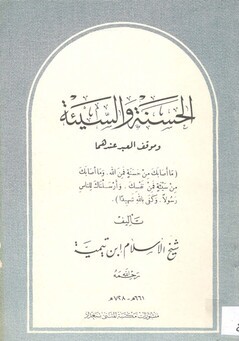 الحسنة والسيئة
وموقف العبد عندهما
(مَا أَصَابَكَ مِنْ حَسَنَةٍ فَمِنَ اللهِ، وَمَا أَصَابَكَ
مِنْ سَيِّئَةٍ فَمِنْ نَفْسِكَ، وَأَرْسَلْنَاكَ لِلنَّاسِ
رَسُولًا، وَكَفَى بِاللهِ شَهِيدًا)
تأليف
شيخ الإسلام ابن تيمية
رحمه الله
٦٦١هـ - ٧٢٨هـ
منشورات مكتبة المثنى ببغداد